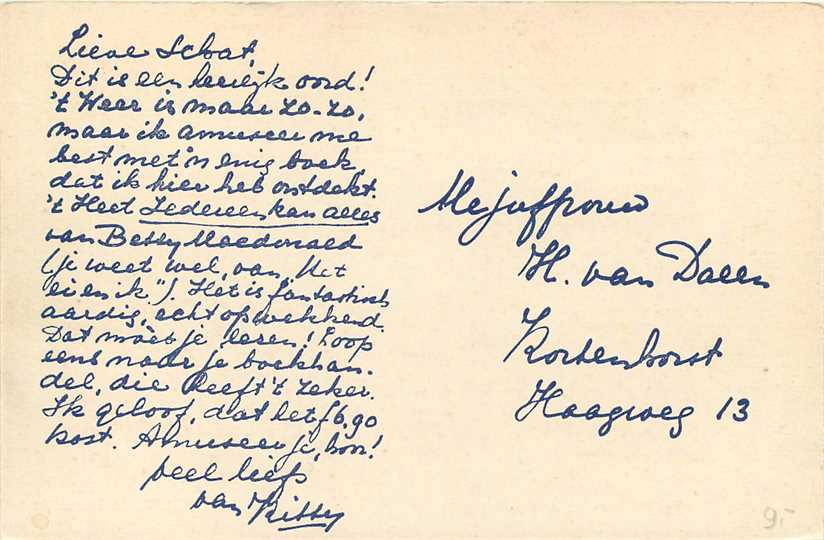 Lieve Schat,
Dit is een heerlijk oord!
't Weer is maar zo-zo,
maar ik amuseer me
best met 'n enig boek,
dat ik hier heb ontdekt.
't Heet Iedereen kan alles
van Betty Macdonald
(je weet wel, van „Het
ei en ik"). Het is fantastisch
aardig, echt opwekkend.
Dat móét je lezen! Loop
eens naar je boekhan-
del, die heeft 't zeker.
Ik geloof, dat het f 6,90
kost. Amuseer je, hoor!
Veel liefs
van Kitty
Mejuffrouw
H. van Dalen
Kortenhorst
Haagweg 13
9,-